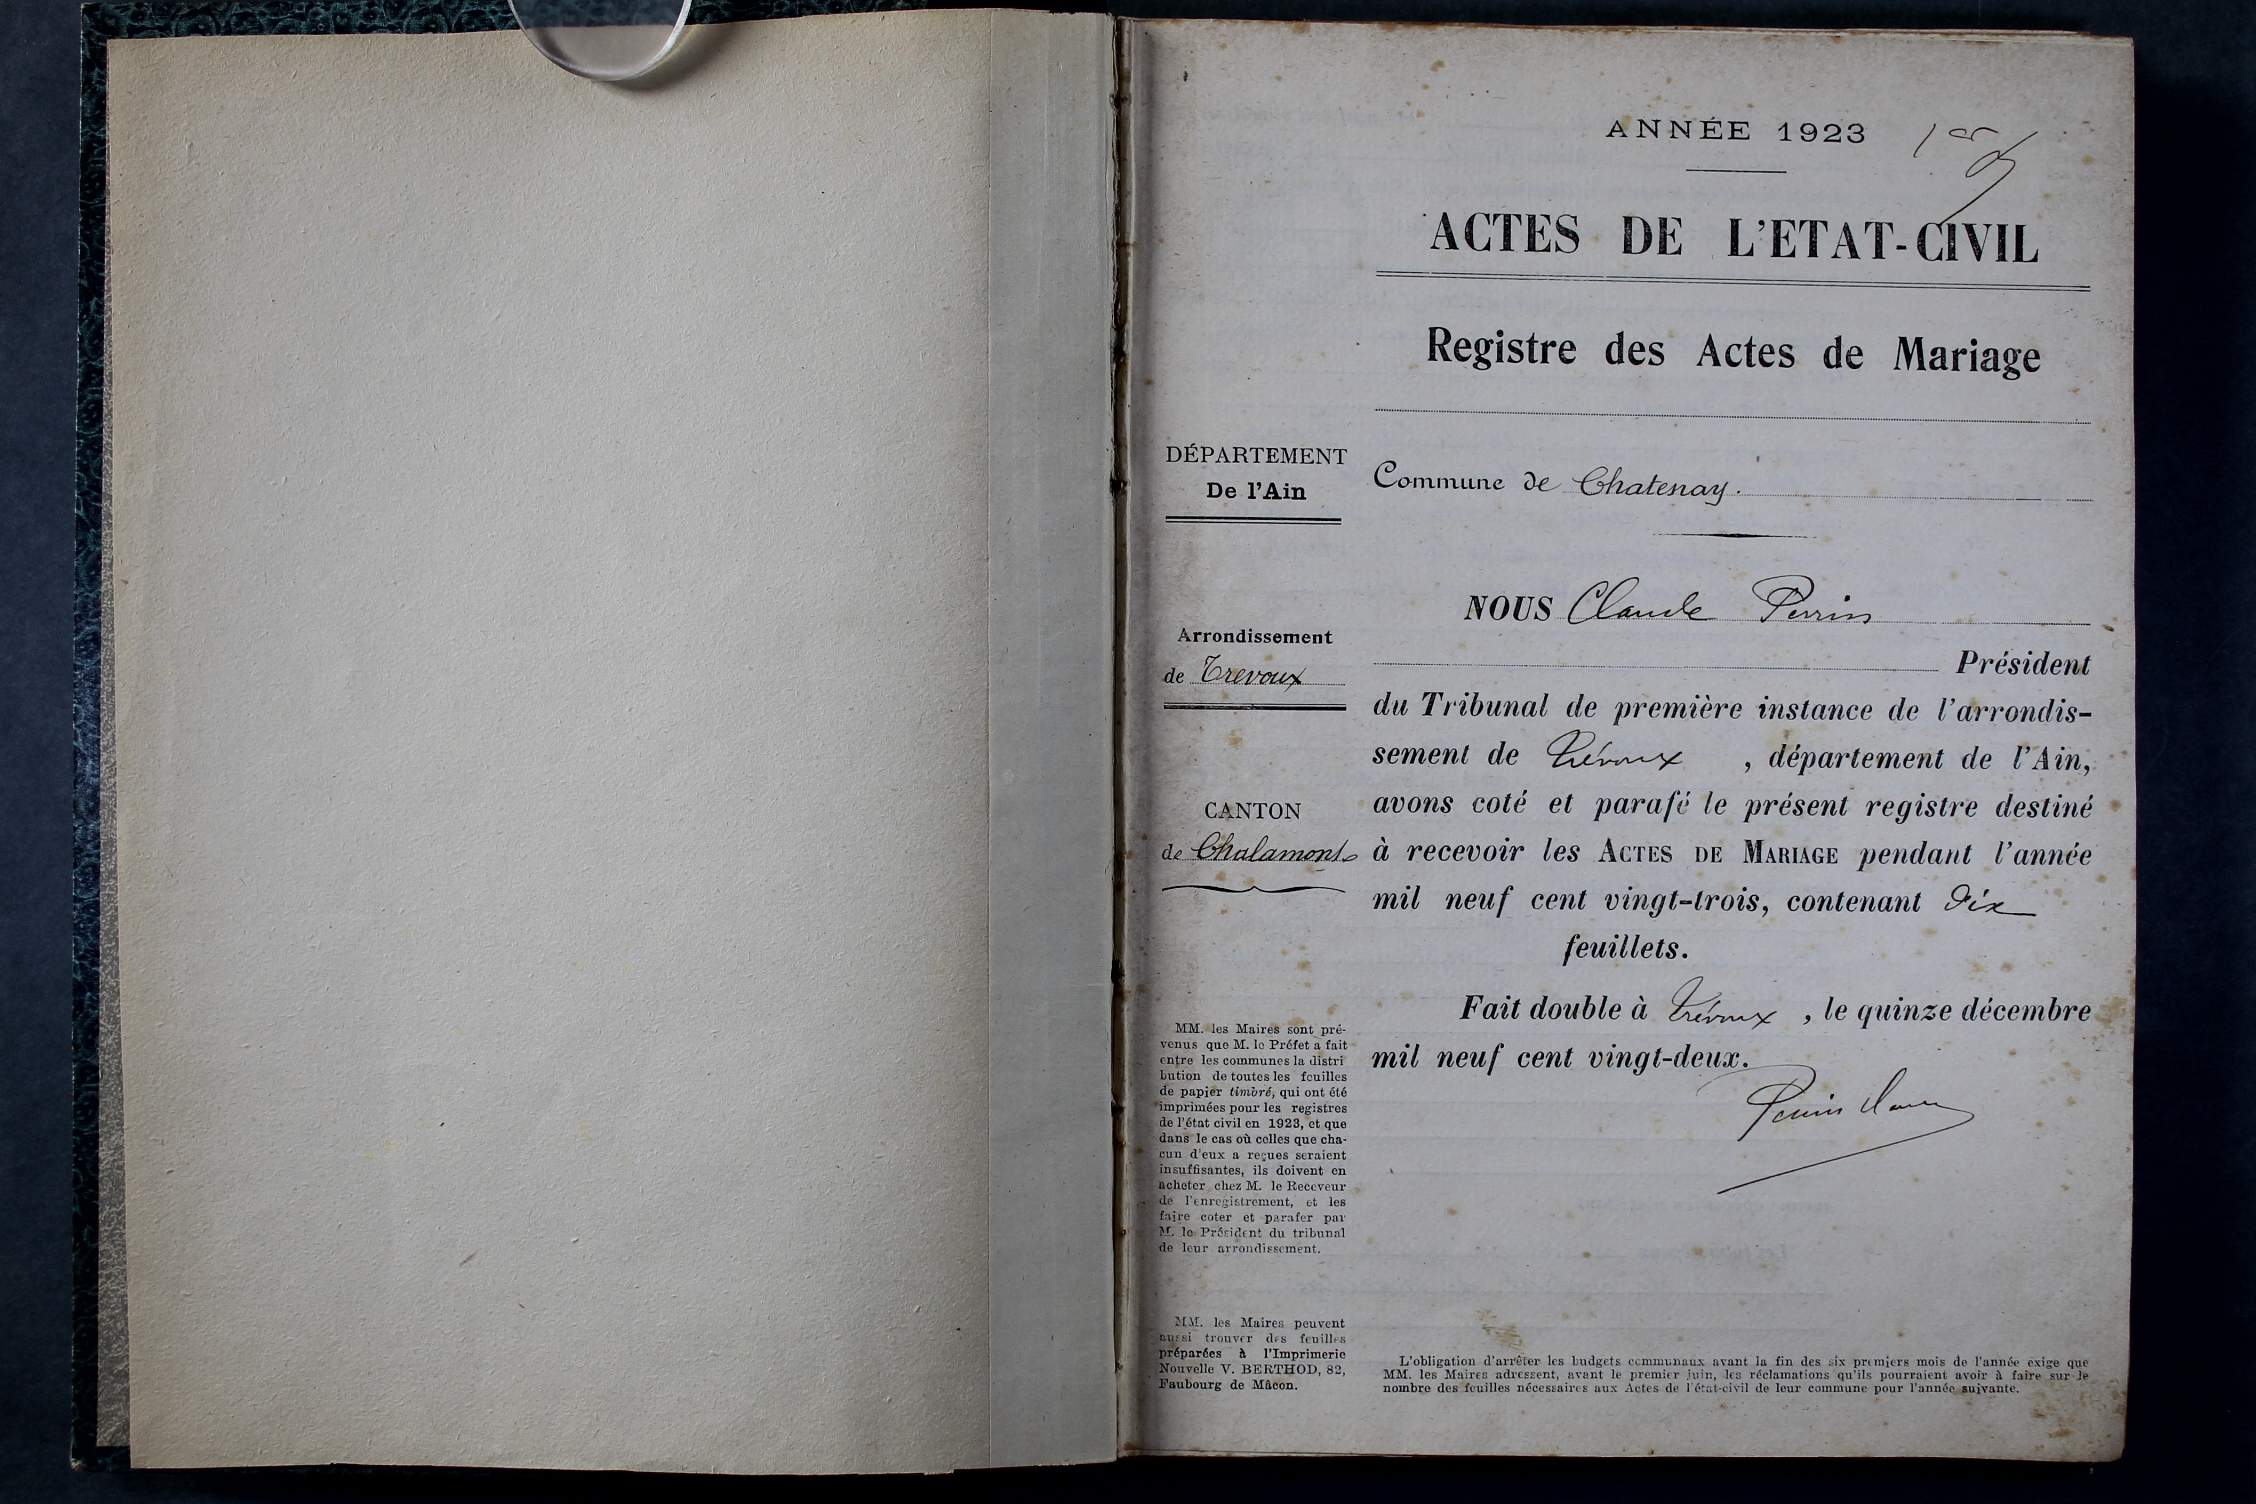 ANNÉE 1923
1er
ACTES DE L'ETAT-CIVIL
Registre des Actes de Mariage
DÉPARTEMENT
De l'Ain
Arrondissement
de Trevoux
CANTON
de Chalamont
MM. les Maires sont pré-
venus que M. le Préfet a fait
entre les communes la distri
bution de toutes les feuilles
de papier timbré, qui ont été
imprimées pour les registres
de l'état civil en 1923, et que
dans le cas où celles que cha-
cun d'eux a reçues seraient
insuffisantes, ils doivent en
acheter chez M. le Receveur
de l'enregistrement, et les
faire coter et parafer par
M. le Président du tribunal
de leur arrondissement.
MM. les Maires peuvent
aussi trouver des feuilles
préparées à l'Imprimerie
Nouvelle V. BERTHOD, 82,
Faubourg de Mâcon.
Commune de Chatenay.
NOUS Claude Perrin
Président
du Tribunal de première instance de l'arrondis-
sement de Trévoux , département de l'Ain,
avons coté et parafé le présent registre destiné
à recevoir les ACTES DE MARIAGE pendant l'année
mil neuf cent vingt-trois, contenant dix
feuillets.
Fait double à Trévoux , le quinze décembre
mil neuf cent vingt-deux.
Perrin
L'obligation d'arrêter les budgets communaux avant la fin des six premiers mois de l'année exige que
MM. les Maires adressent, avant le premier juin, les réclamations qu'ils pourraient avoir à faire sur le
nombre des feuilles nécessaires aux Actes de l'état-civil de leur commune pour l'année suivante.